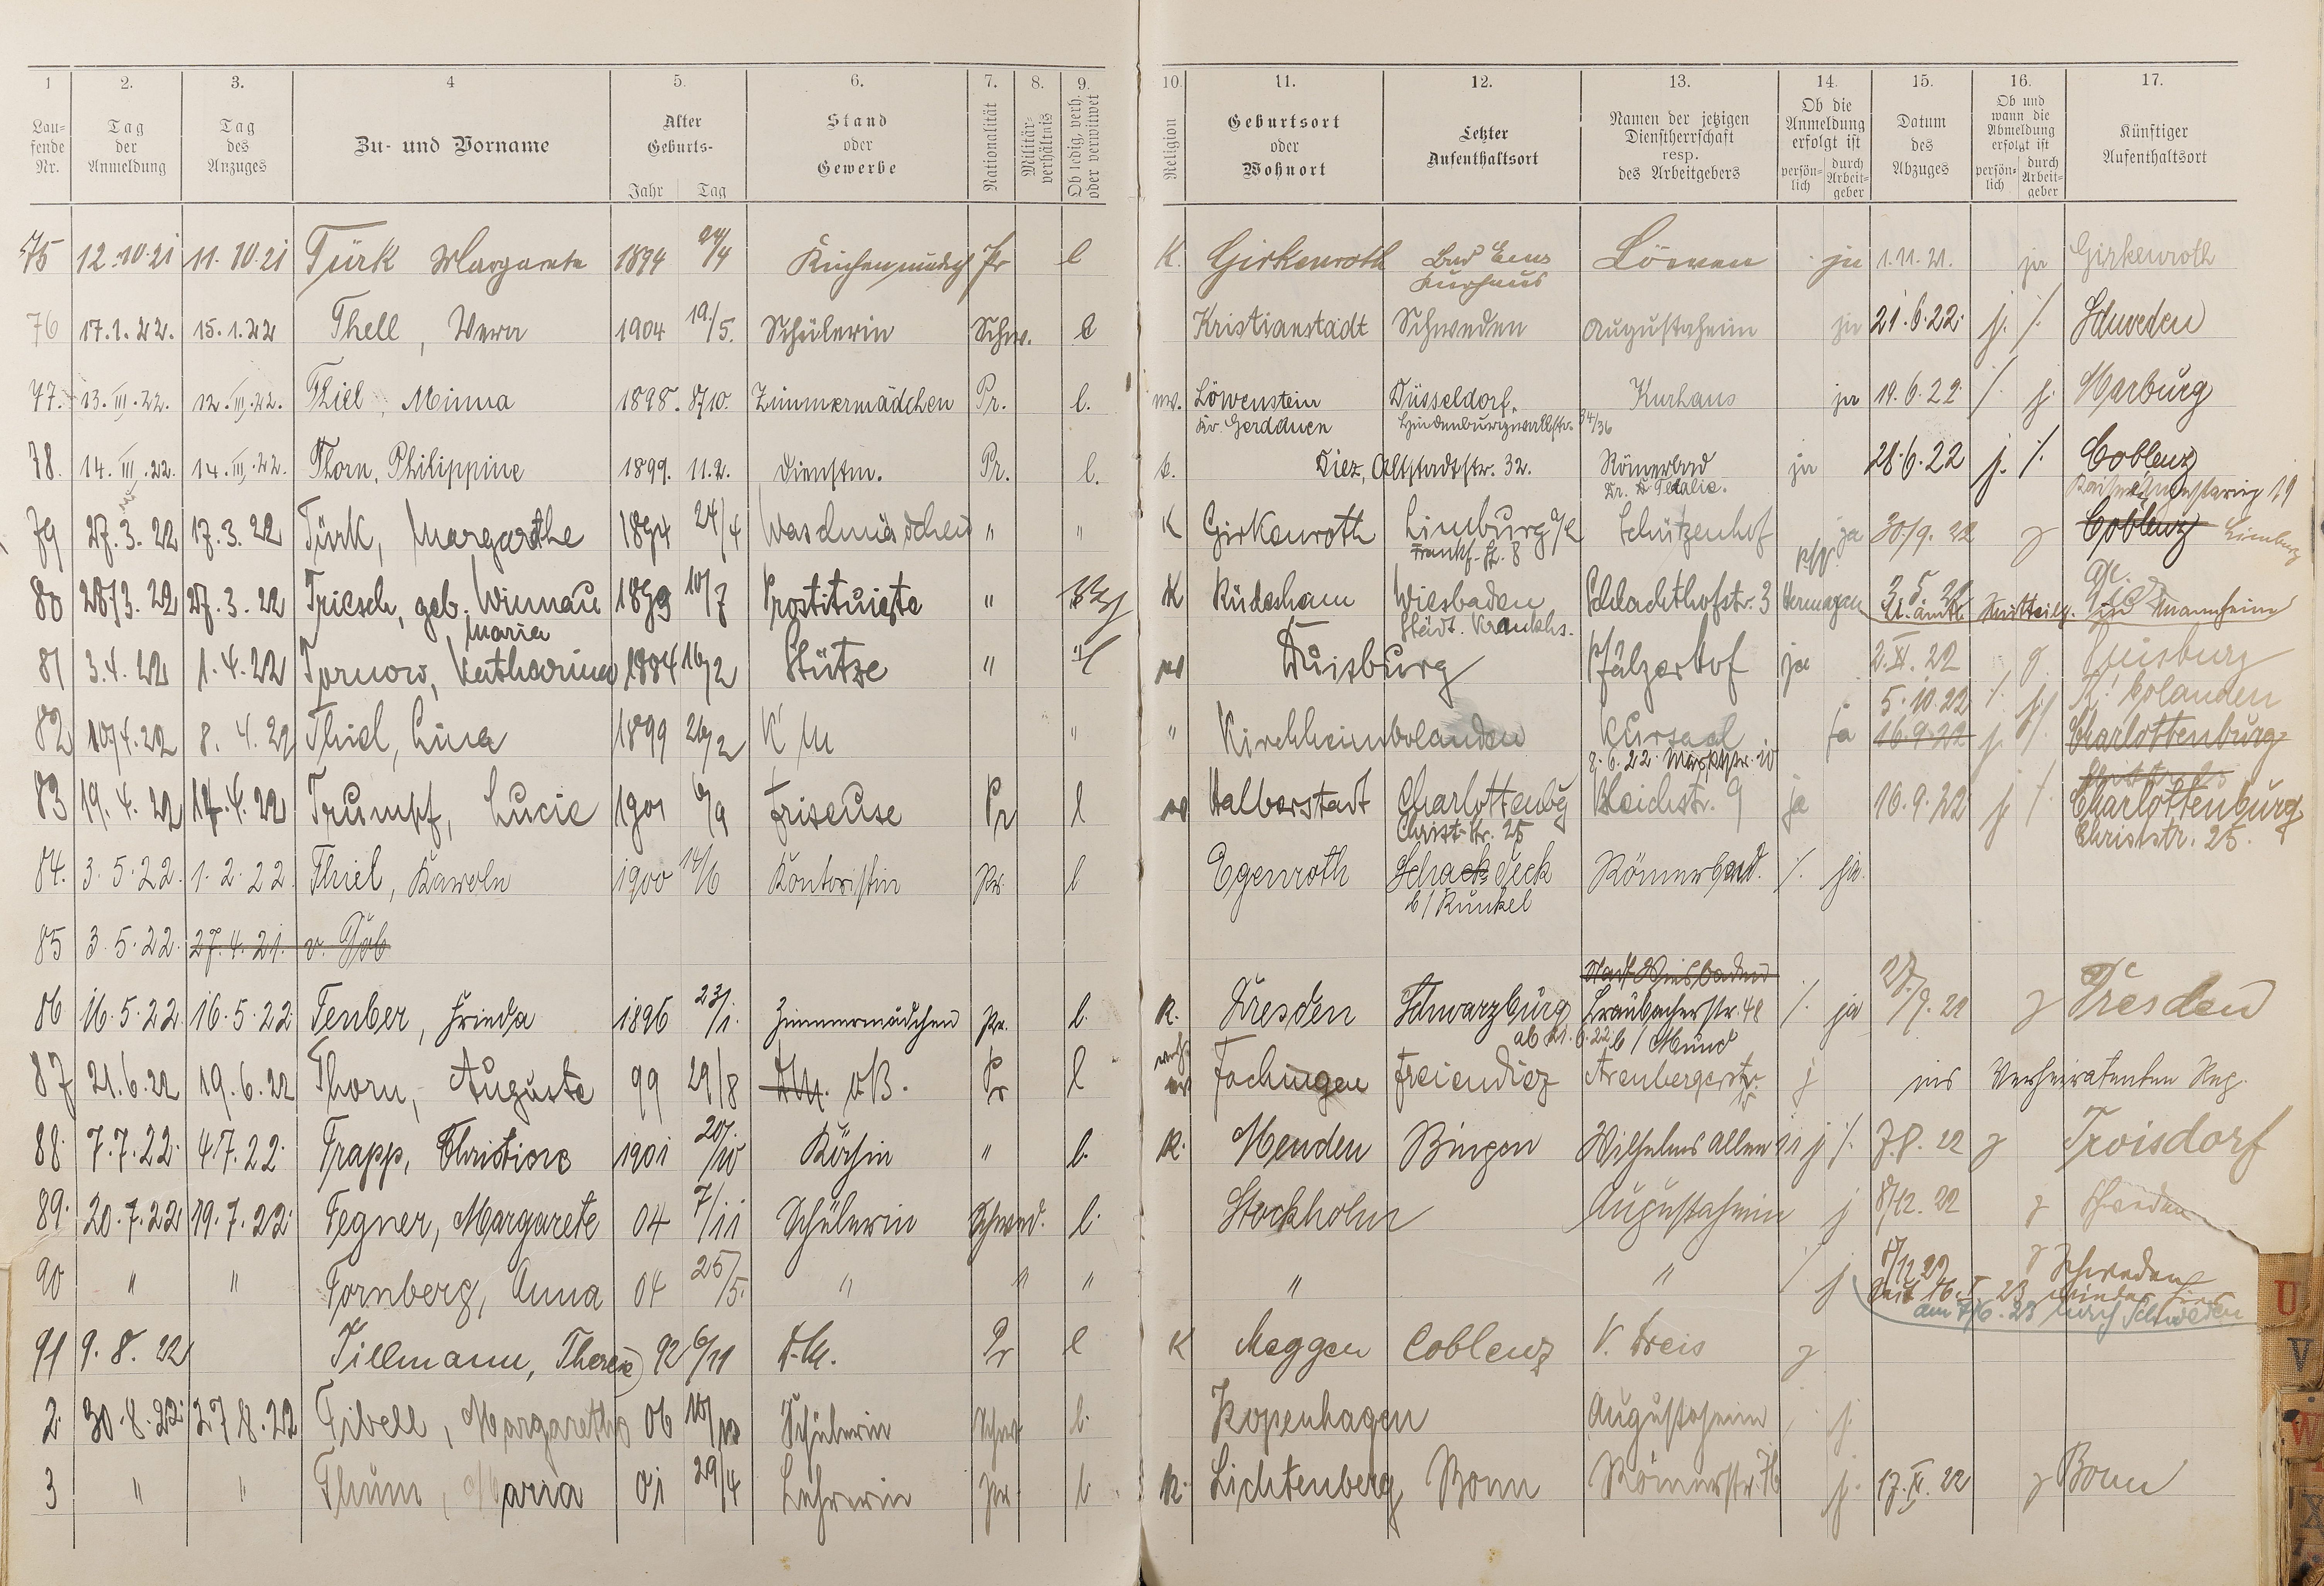 1 2. 3. 4 5. 6. 7. 8. 9. 10. 11. 12. 13. 14. 15. 16. 17.
Lau-
fende
Nr.
Tag
der
Anmeldung
Tag
des
Anzuges
Zu- und Vorname
Alter
Geburts-
Jahr Tag
Stand
oder
Gewerbe
Nationalität
Militär-
verhältnis
Ob ledig, verh.
oder verwitwet
Religion
Geburtsort
oder
Wohnort
Letzter
Aufenthaltsort
Namen der jetzigen
Dienstherrschaft
resp.
des Arbeitgebers
Ob die
Anmeldung
erfolgt ist
persön-
lich
durch
Arbeit-
geber
Datum
des
Abzuges
Ob und
wann die
Abmeldung
erfolgt ist
persön-
lich
durch
Arbeit-
geber
Künftiger
Aufenthaltsort
75 12.10.21 11.10.21 Türk Margarete 1894 24/4 Pr l K. Girkenroth Bad Ems Löwen ja 1.11.21. ja Girkenroth
Kurhaus
76 17.1.22. 15.1.22 Thell, Vera 1904 19./5. Schülerin Schw. l Kristianstadt Schweden Augustaheim ja 21.6.22. j. /. Schweden
77. 13.III.22. 12.III.22. Thiel, Minna 1898. 8/10. Zimmermädchen Pr. l. Löwenstein Düsseldorf, Kurhaus ja 19.6.22. /. j. Marburg
Kr. Gerdauen Hindenburgwallstr. 34/36
78. 14.III.22. 14.III.22. Thorn, Philippine 1899. 11.2. Dienstm. Pr. l. k. Diez, Altstadtstr. 32. Römerbad ja 28.6.22 j. /. Coblenz
79 27.3.22 17.3.22 Türk, Margarethe 1894 24/4 Waschmädchen " " K Girkenroth Limburg a/L Schützenhof ja 30/9.22 Coblenz Limburg
Frankf. Str. 8
80 28/3.22 27.3.22 Triesch, geb. Wimmau 1899 10/7 Prostituierte " K Rüdesheim Wiesbaden Schlachthofstr. 3
Maria Städt. Krankhs. Mannheim
81 3.4.22 1.4.22 Tornow, Katharina 1884 16/2 Stütze " l Duisburg Pfälzerhof ja 2.XI.22 Duisburg
5.10.22 K. bolanden
82 10/4.22 8.4.22 Thiel, Lina 1899 26/2 K M " " Kirchheimbolanden Kursaal ja 16.9.22 j. /. Charlottenburg
8.6.22 Marktstr. 10
83 19.4.22 14.4.22 Trumpf, Lucie 1901 6/9 Friseuse Pr l Halberstadt Charlottenbg Bleichstr. 9 ja 16.9.22 j /. Charlottenburg
Christ-Str. 25 Christstr. 25.
84. 3.5.22. 1.2.22. Thiel, Karoln 1900 14/6 Kontoristin Pr. l Egenroth Schadeck Römerbad. /. ja.
b/Runkel
85 3.5.22. 27.4.21. v.
Stadt Wiesbaden
86 16.5.22 16.5.22 Tenber, Frieda 1896 23/1. Zimmermädchen Pr. l. K. Dresden Schwarzburg Braubacherstr. 48 /. ja 27/9.22 Dresden
ab 21.6.22 b/
87 21.6.22 19.6.22 Thorn, Auguste 99 29/8 D.M. o.B. Pr l Fachingen Freiendiez Arenbergerstr. j ins Verheirateten Reg.
88. 7.7.22. 4.7.22. Trapp, Christine 1901 20/10 Köchin " l. K. Menden Bingen Wilhelms Allee 11 j /. 7.8.22 Troisdorf
89. 20.7.22 19.7.22. Tegner, Margarete 04 7/11 Schülerin Schwed. l. Stockholm Augustaheim j 8/12.22 Schweden
90 " " Tornberg, Anna 04 25/5. " " " " " / j 8/12.22 Schweden
Seit 16.I.23 wieder hier
am 7/6.23 nach Schweden
91 9.8.22 Tillmann, Therese 92 6/11 D.M. Pr l K Meggen Coblenz V. Dreis
2. 30.8.22. 27.8.22 Tibell, Margarethe 06 Schülerin Schwed. l. Kopenhagen Augustaheim / j.
3 " " Thum, Maria 01 29/4 Lehrerin Pr. l K. Lichtenberg Bonn j. 17.XI.22 Bonn
U
V
W
X